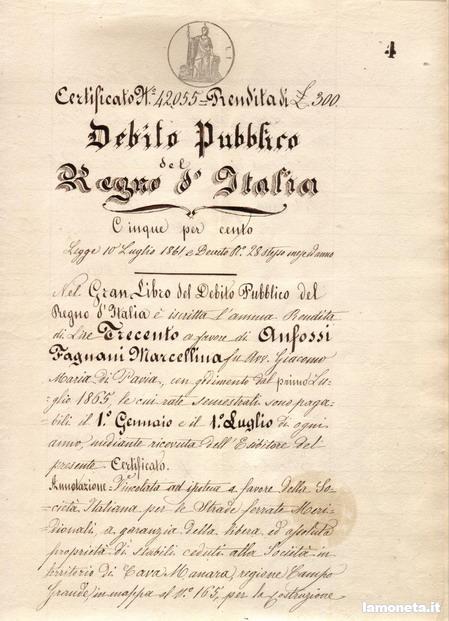 4
Certificato N.º 42055 = Rendita di £ 300
Debito Pubblico
del
Regno d'Italia
Cinque per cento
Legge 10 Luglio 1861 e Decreto R.º 28 stesso mese ed anno
Nel Gran Libro del Debito Pubblico del
Regno d'Italia è iscritta l'annua Rendita
di Lire Trecento a favore di Anfossi
Fagnani Marcellina fu Avv. Giacomo
Maria di Pavia, con godimento dal primo Lu-
glio 1865 le cui rate semestrali sono paga-
bili il 1.º Gennaio e il 1.º Luglio di ogni
anno, mediante ricevuta dell'Esibitore del
presente Certificato.
Annotazione = Vincolata ad ipoteca a favore della So-
cietà Italiana per le Strade ferrate Meri-
dionali, a garanzia della libera ed assoluta
proprietà di stabili ceduti alla Società in
territorio di Cava Manara, regione Campo
Grande, in mappa al N.º 165, per la costruzione
lamoneta.it